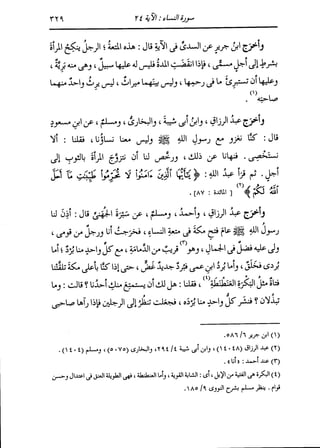 سورة النساء : الآية ٢٤ ٣٢٩
وأخرج ابن جرير عن السدى فى الآية قال : هذه المتعة ؛ الرجل ينكح المرأة
بشرط إلى أجل مسمى ، فإذا انقضت المدة فليس له عليها سبيل ، وهى منه بَرِيَّة ،
وعليها أن تستبرئ ما فى رحمها ، وليس بينهما ميراث ، ليس يرث واحد منهما
صاحبه(١) .
وأخرج عبد الرزاق ، وابن أبى شيبة ، والبخارى ، ومسلم ، عن ابن مسعود
قال : كنا نغزو مع رسول الله ﷺ وليس معنا نساؤنا ، فقلنا : ألا
نستخصى . فنهانا عن ذلك ، ورخص لنا أن نتزوج المرأة بالثوب إلى
أجل . ثم قرأ عبد الله : ﴿ يَٰٓأَيُّهَا ٱلَّذِينَ ءَامَنُوا۟ لَا تُحَرِّمُوا۟ طَيِّبَٰتِ مَآ أَحَلَّ
ٱللَّهُ لَكُمْ ﴾(٢) [ المائدة : ٨٧ ] .
وأخرج عبد الرزاق ، وأحمد ، ومسلم ، عن سَبْرَة الجُهَنِىِّ قال : أذن لنا
رسول الله ﷺ عام فتح مكة فى متعة النساء ، فخرجت أنا ورجل من قومى ،
ولى عليه فضل فى الجمال ، وهو(٣) قريب من الدمامة ، مع كل واحد منا بُرْدٌ ؛ أما
بُرْدى فخَلَقٌ ، وأما بُرْدُ ابن عمى فبُرْدٌ جديدٌ غَضٌّ ، حتى إذا كنا بأعلى مكة تلقَّتْنا
فتاةٌ مثلُ البَكْرَةِ العَنَطْنَطَةِ(٤) ، فقلنا : هل لك أن يستمتع منك أحدُنا ؟ قالت : وما
تبذلان ؟ فنشر كل واحد منا بُرْدَه ، فجعلت تنظر إلى الرجلين فإذا رآها صاحبى
(١) ابن جرير ٦/ ٥٨٦.
(٢) عبد الرزاق (١٤٠٤٨) ، وابن أبى شيبة ٤/ ٢٩٤، والبخارى (٥٠٧٥) ، ومسلم (١٤٠٤) .
(٣) عند أحمد : أنا٤ .
(٤) البكرة هى الفتية من الإبل ، أى : الشابة القوية ، وأما العنطنطة ، فهى الطويلة العنق فى اعتدال وحسن
قوام . ينظر مسلم بشرح النووى ٩/ ١٨٥.